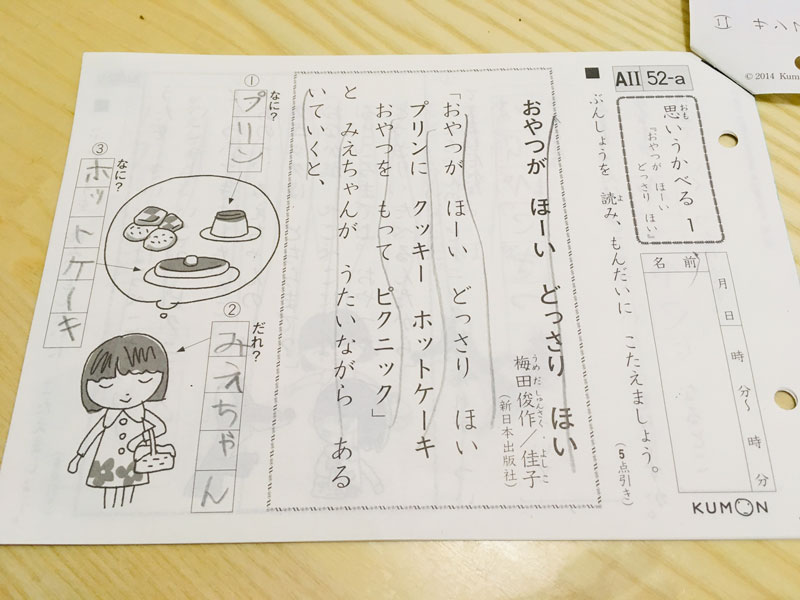 AII 52-a
思いうかべる 1
おも
『おやつが ほーい
どっさり ほい』
名前
月 日
時 分〜 時 分
KUMON
■ ぶんしょうを 読み、もんだいに こたえましょう。
よ
(5点引き)
おやつが ほーい どっさり ほい
梅田俊作/佳子
うめだしゅんさく・よしこ
(新日本出版社)
「おやつが ほーい どっさり ほい
プリンに クッキー ホットケーキ
おやつを もって ピクニック」
と みえちゃんが うたいながら ある
いていくと、
① なに?
プリン
② だれ?
みえちゃん
③ なに?
ホットケーキ
© 2014 Kum